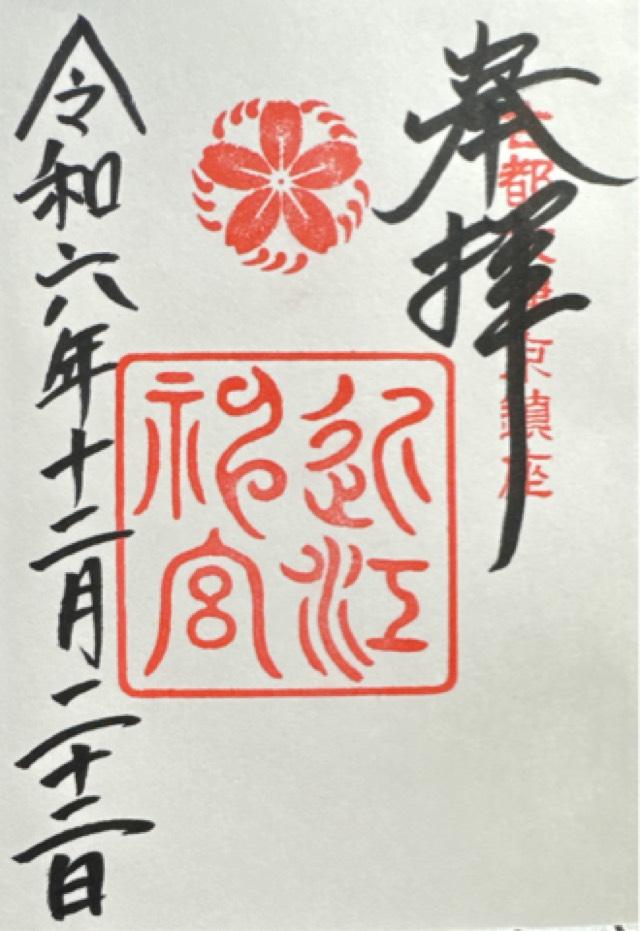 奉拝
古都大津京鎮座
近江
神宮
令和六年十二月二十二日